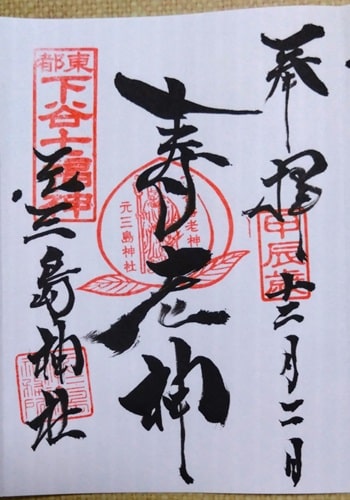 奉拝
甲辰歳
十二月二日
寿老神
寿老神
元三島神社
東都
下谷七福神
元三島神社